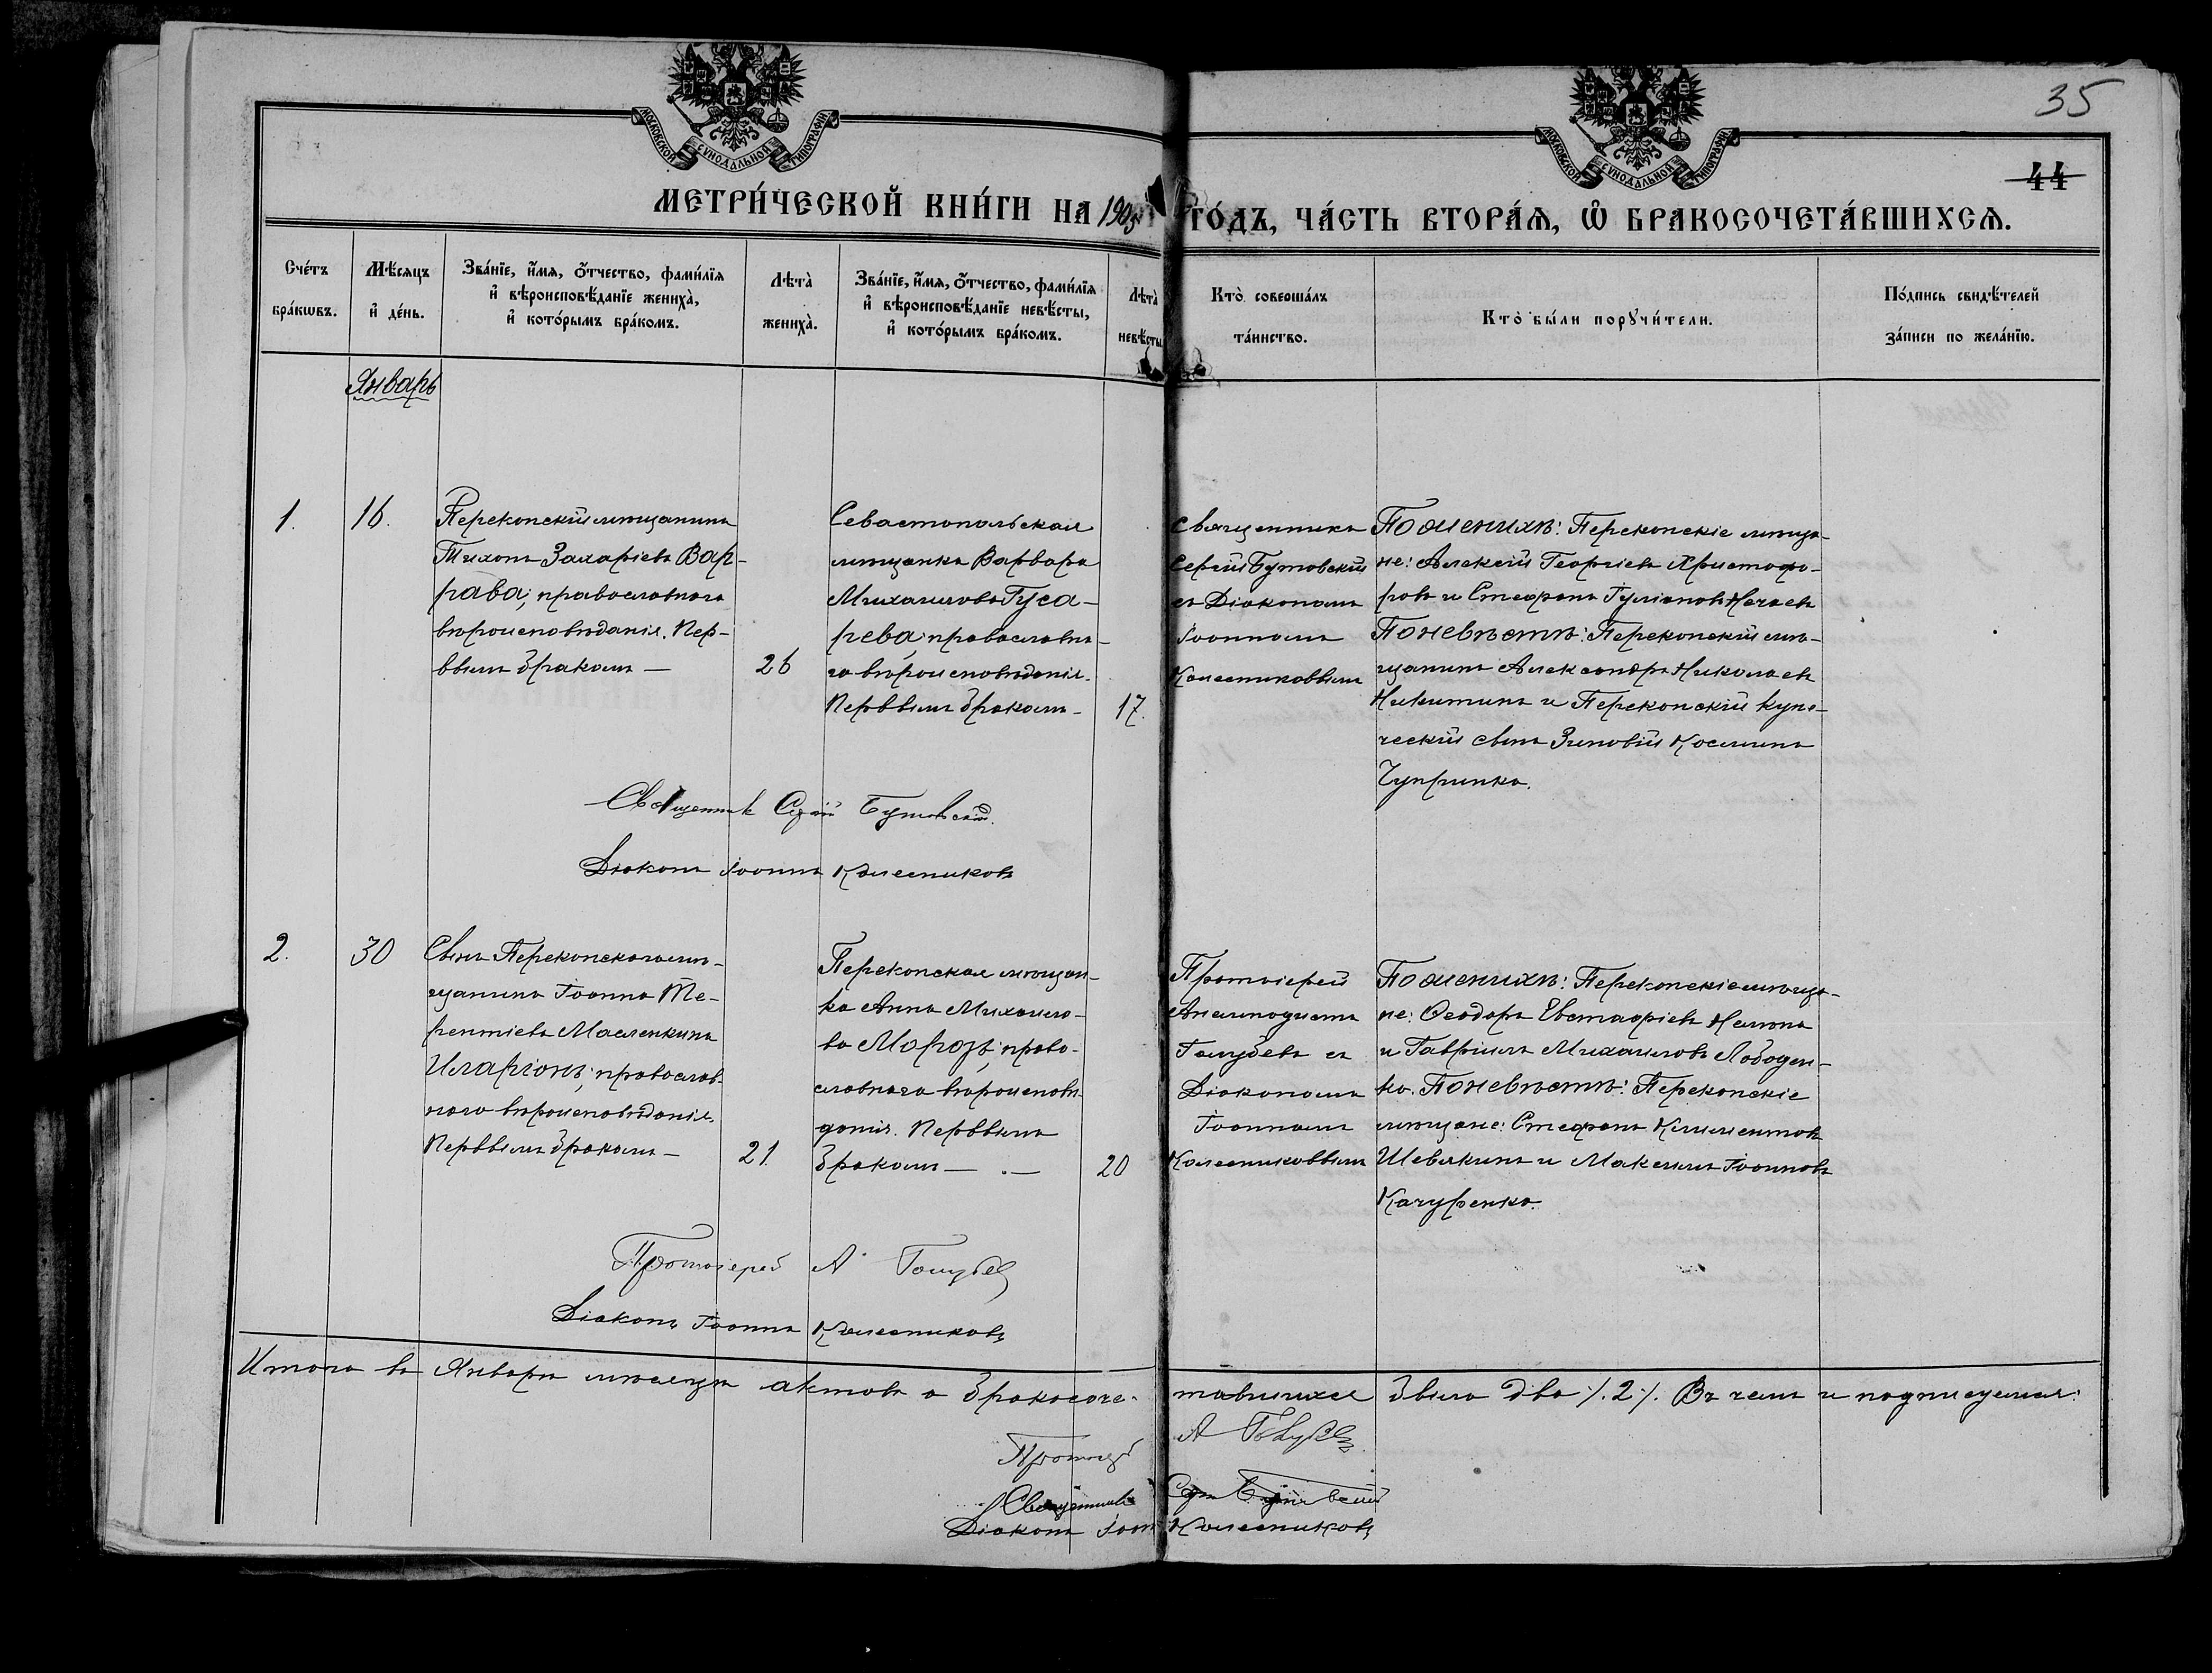 МОСКОВСКОЙ СѴНОДАЛЬНОЙ ТИПОГРАФІИ
МОСКОВСКОЙ СѴНОДАЛЬНОЙ ТИПОГРАФІИ
35
44
МЕТРИ́ЧЕСКОЙ КНИ́ГИ НА 1905 ГО́ДЪ, ЧА́СТЬ ВТОРА́Ѧ, Ѽ БРАКОСОЧЕТА́ВШИХСѦ.
Сче́тъ
бра́кѡвъ.
Мѣ́сяцъ
и҆ де́нь.
Зва́нїе, и҆́мя, ѻ҆́тчество, фами́лїя
и҆ вѣроисповѣ́данїе женихà,
и҆ кото́рымъ бра́комъ.
Лѣтà
женихà.
Зва́нїе, и҆́мя, ѻ҆́тчество, фами́лїя
и҆ вѣроисповѣ́данїе невѣ́сты,
и҆ кото́рымъ бра́комъ.
Лѣтà
невѣ́сты
Кто̀ соверша́лъ
та́инство.
Кто̀ бы́ли порꙋчи́тели.
По́дпись свидѣ́телей
за́писи по жела́нїю.
Январь
1.
16.
Перекопскій мѣщанинъ
Тихонъ Захаріевъ Вар-
рава; православнаго
вѣроисповѣданія. Пер-
вымъ бракомъ —
26
Севастопольская
мѣщанка Варвара
Михаилова Гуса-
рева; православна-
го вѣроисповѣданія.
Первымъ бракомъ —
17.
Священникъ
Сергій Бутовскій
съ Діакономъ
Іоанномъ
Колесниковымъ
По женихѣ: Перекопскіе мѣща-
не: Алексій Георгіевъ Христофо-
ровъ и Стефанъ Гуліановъ Нечаевъ
По невѣстѣ: Перекопскій мѣ-
щанинъ Александръ Николаевъ
Никитинъ и Перекопскій купе-
ческій сынъ Зиновій Косминъ
Чупринка.
Священникъ Сергій Бутовскій.
Діаконъ Іоаннъ Колесниковъ
2.
30
Сынъ Перекопскаго мѣ-
щанина Іоанна Те-
рентіева Масленкина
Иларіонъ; православ-
наго вѣроисповѣданія.
Первымъ бракомъ —
21.
Перекопская мѣщан-
ка Анна Михаило-
ва Морозъ; право-
славнаго вѣроисповѣ-
данія. Первымъ
бракомъ — . —
20
Протоіерей
Анемподистъ
Голубевъ съ
Діакономъ
Іоанномъ
Колесниковымъ
По женихѣ: Перекопскіе мѣща-
не: Ѳеодоръ Евстафіевъ
и Гавріилъ Михаиловъ Лободен-
ко. По невѣстѣ: Перекопскіе
мѣщане: Стефанъ Климентовъ
Шевякинъ и Максимъ Іоанновъ
Качуренко.
Протоіерей А Голубевъ
Діаконъ Іоаннъ Колесниковъ
Итого въ Январѣ мѣсяцѣ актовъ о бракосоче-
тавшихся было два /.2/. Въ чемъ и подписуемся:
Протоіер А Голубевъ
Священникъ Сергій Бутовскій
Діаконъ Іоан Колесниковъ